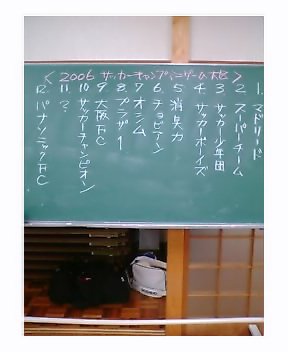 <2006 サッカーキャンプミニゲーム大会>
1. マドリード
2. スーパーチーム
3. サッカー少年団
4. サッカーボーイズ
5 消臭力
6 チョビアン
7 オシム
8 プラザ1
9 大阪FC
10 サッカーチャンピオン
11 ?
12. パナソニックFC